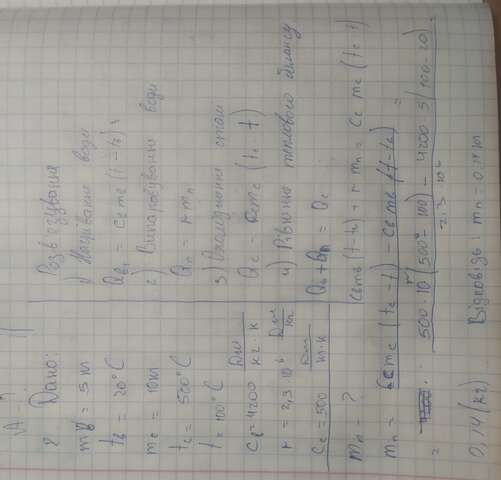 8 Дано:
mв = 5 т
tв = 20°C
mс = 10 т
tс = 500°C
t = 100°C
cв = 4200 Дж/кг·К
r = 2,3·10⁶ Дж/кг
cс = 500 Дж/кг·К
mп - ?
Розв'язування
1) Нагрівання води
Qв₁ = cв mв (t - tв);
2) Випаровування води
Qп = r mп
3) Охолодження сталі
Qс = cс mс (tс - t)
4) Рівняння теплового балансу
Qв + Qп = Qс
cв mв (t - tв) + r mп = cс mс (tс - t)
mп = cс mс (tс - t) - cв mв (t - tв)
= 500·10 (500° - 100) - 4200·5 (100 - 20) =
2,3·10⁶
0,14 (кг)
Відповідь: mп = 0,14 т